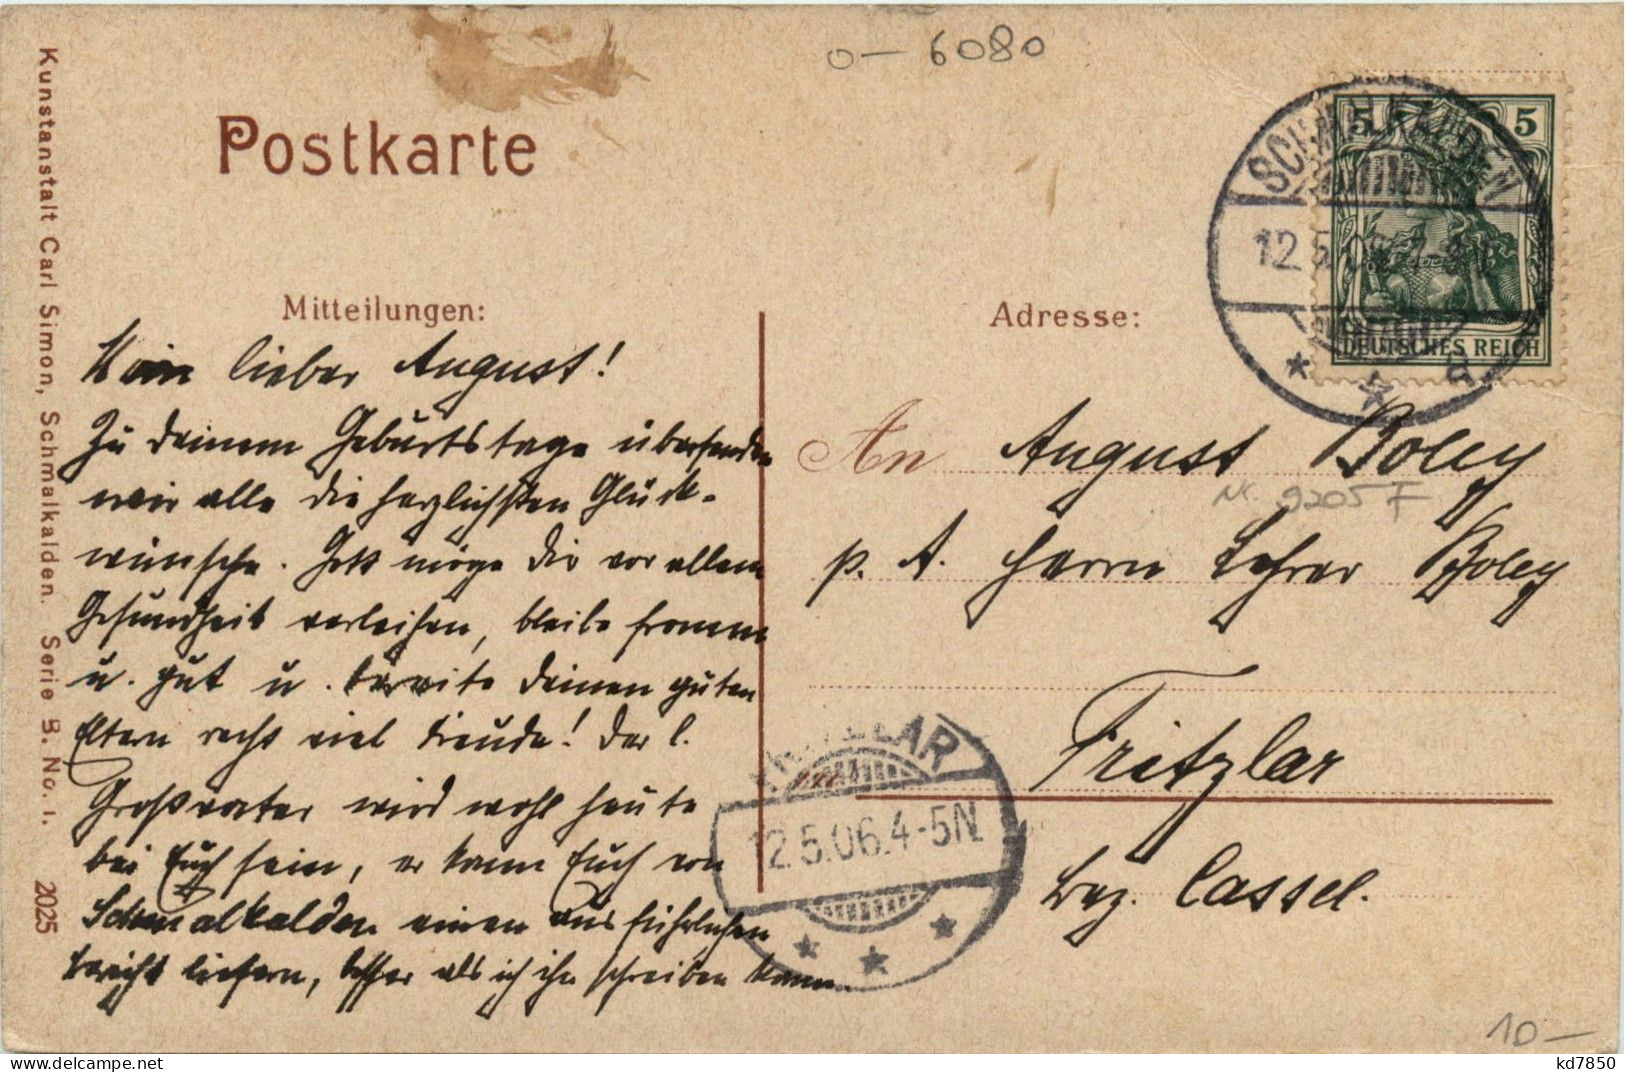 0 - 6080
Postkarte
Kunstanstalt Carl Simon, Schmalkalden. Serie B. No. 1. 2025
SCHMALKALDEN
12.5.06
5 5
DEUTSCHES REICH
Mitteilungen:
Adresse:
Mein lieber August!
Zu deinem Geburtstage übersenden
wir alle die herzlichsten Glück-
wünsche. Gott möge dir vor allem
Gesundheit verleihen, bleibe fromm
u. gut u. bereite deinen guten
Eltern recht viel Freude! Der l.
Großvater wird wohl heute
bei Euch sein, er kann Euch von
Schmalkalden einen ausführlichen
Bericht liefern, besser als ich ihn schreiben kann.
An August Boley
Nr. 9205 F
p. A. Herrn Lehrer Boley
Fritzlar
Bez. Cassel.
FRITZLAR
12.5.06.4-5N.
10-
kd7850